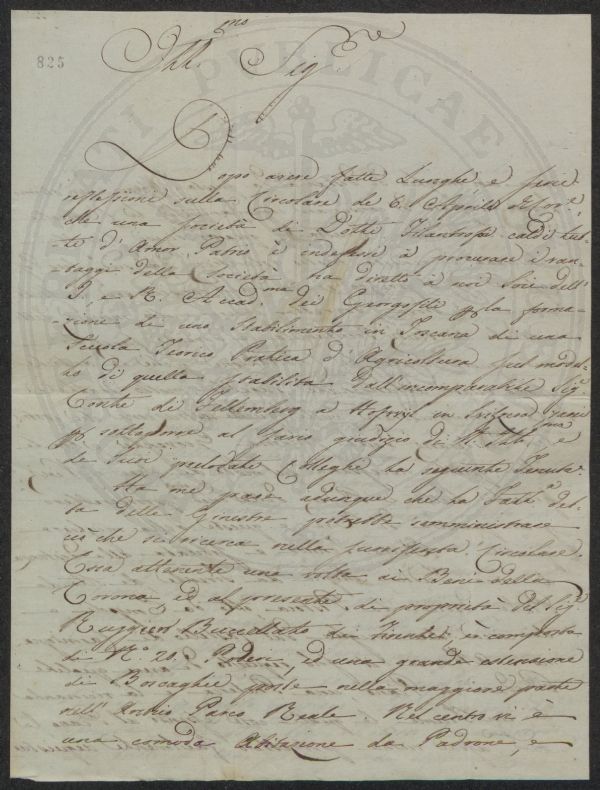 825
Ill.mo Sig.re
Dopo avere fatte lunghe e serie
riflessione sulla Circolare de 6. Aprile
che una società di Dotti Filantropi caldi tut-
-ti d'Amor Patrio è indefessi à procurare i van-
-taggi della Società ha diretto à noi Soci dell'
I. e R. Accad.ma dei Georgofili p la forma-
-zione di uno Stabilimento in Toscana di una
Scuola Teorico Pratica d'Agricoltura sul model-
-lo di quella stabilita dall'incomparabile Sig.
Conte di Fellemberg a Hofwyl in Svizzera
p sottoporre al savio giudizio di e
de Suoi prelodate Colleghe la seguente Tenuta.
A me pare adunque che la Fatt.a det-
-ta delle Ginestre potrebbe somministrare
ciò che si ricerca nella Circolare.
Essa attenente una volta ai Beni della
Corona, ed al presente di proprietà del Sig.
Ruggieri Buccellato è composta
di N.o 20. Poderi, ed una grande estensione
di Boscaglie poste nella maggiore parte
nell' Parco Reale. Nel centro vi è
una comoda Abitazione da Padrone, e